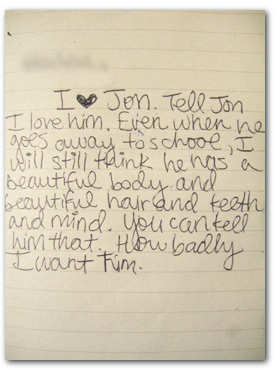 I ♥ Jon. Tell Jon
I love him. Even when he
goes away to school, I
will still think he has a
beautiful body and
beautiful hair and teeth
and mind. You can tell
him that. How badly
I want him.